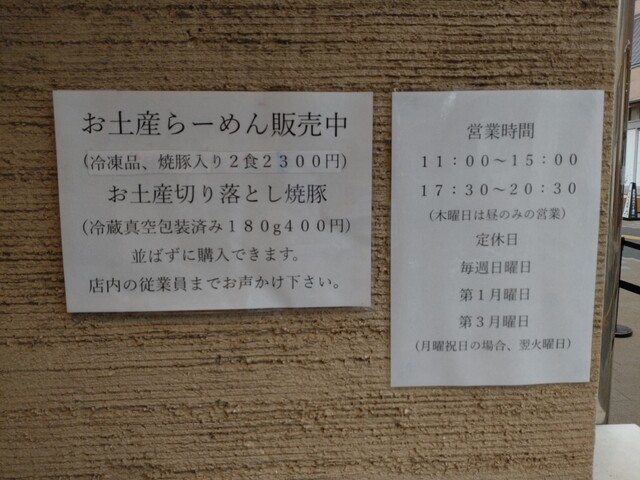 お土産らーめん販売中
(冷凍品、焼豚入り２食２３００円)
お土産切り落とし焼豚
(冷蔵真空包装済み１８０g４００円)
並ばずに購入できます。
店内の従業員までお声かけ下さい。
営業時間
１１：００～１５：００
１７：３０～２０：３０
(木曜日は昼のみの営業)
定休日
毎週日曜日
第１月曜日
第３月曜日
(月曜祝日の場合、翌火曜日)